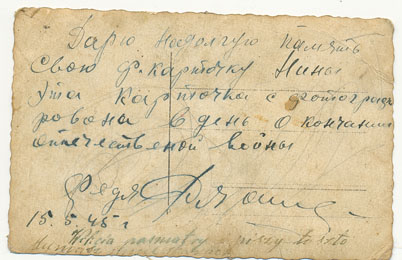 Дарю надолгую память
свою ф. карточку Нины
Эта карточка с фотограф
рована в день окончания
отечественой войны
Федя
15.5.45 г